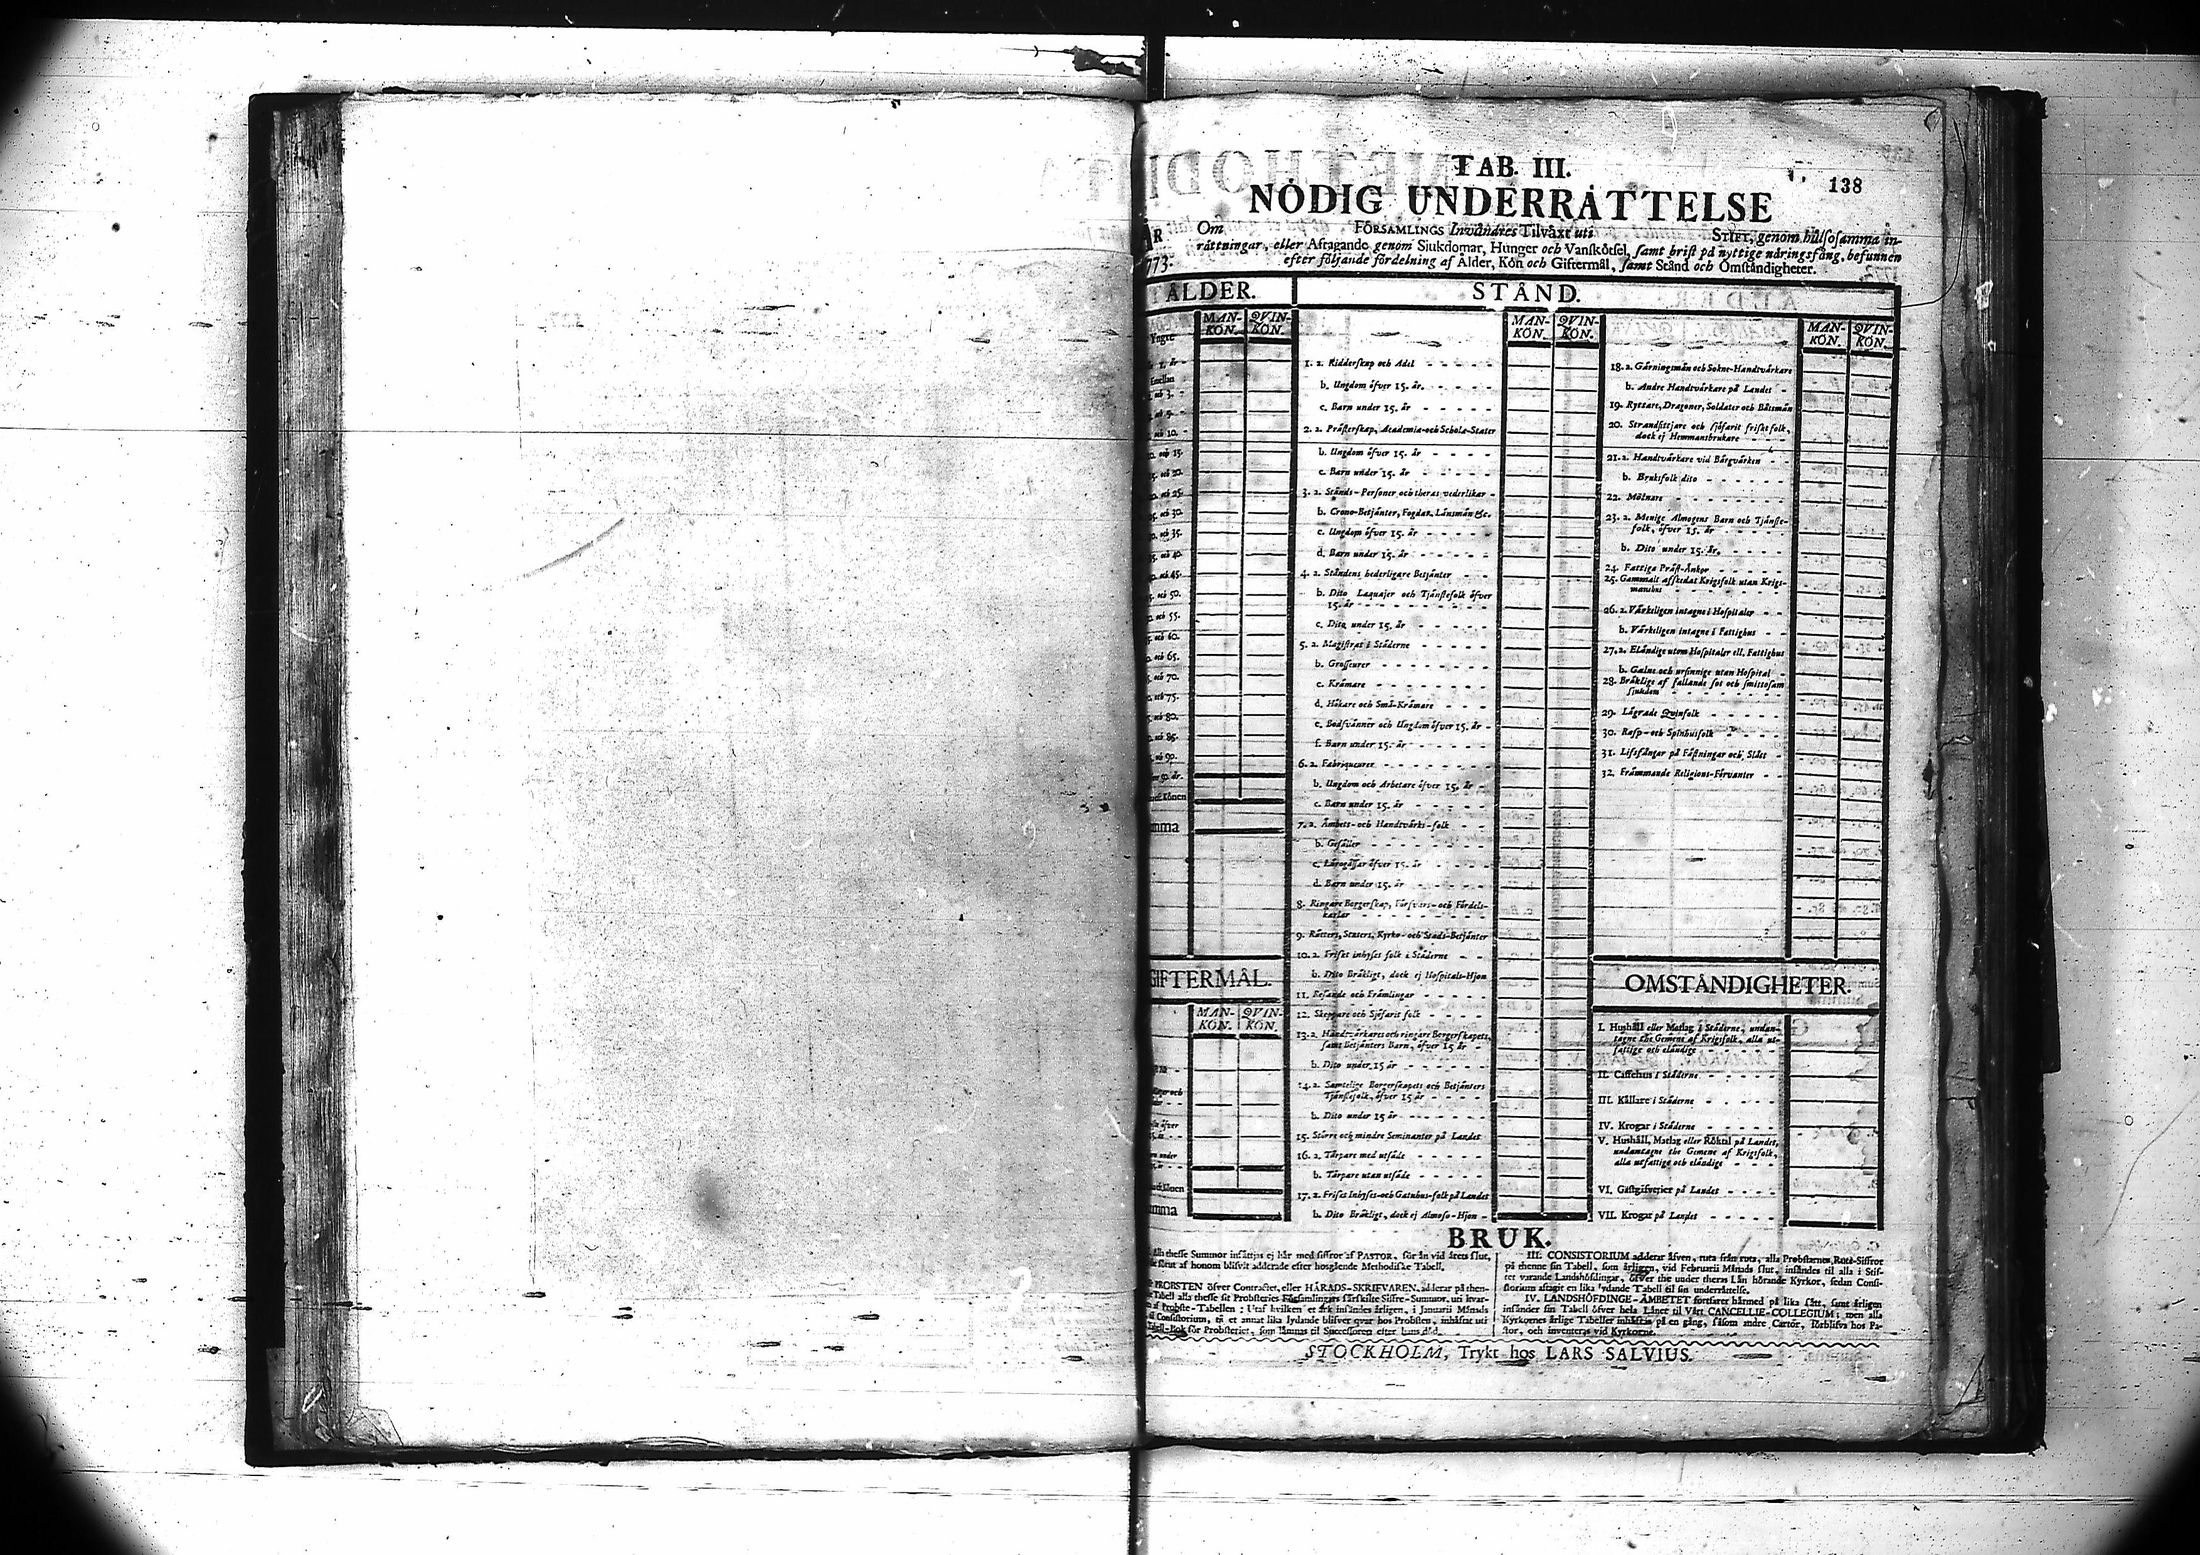 TAB. III.
138
NÖDIG UNDERRÅTTELSE
ÅR
1773.
Om FÖRSAMLINGS Invånares Tilvåxt uti STIFT, genom hålsosamma in-
råttningar, eller Aftagande genom Siukdomar, Hunger och Vanskötsel, samt brist på nyttige nåringsfång, befunnen
efter följande fördelning af Ålder, Kön och Giftermål, samt Stånd och Omståndigheter.
ÅLDER.
MAN-KÖN. QVIN-KÖN.
Yngre
1. år
Emellan
och 3.
och 5.
och 10.
och 15.
och 20.
och 25.
och 30.
och 35.
och 40.
och 45.
och 50.
och 55.
och 60.
och 65.
och 70.
och 75.
och 80.
och 85.
och 90.
90. år.
Könen
Summa
GIFTERMÅL.
MAN-KÖN. QVIN-KÖN.
Könen
Summa
STÅND.
MAN-KÖN. QVIN-KÖN.
1. a. Ridderskap och Adel
b. Ungdom öfver 15. år.
c. Barn under 15. år
2. a. Pråsterskap, Academiæ-och Scholæ-Stater
b. Ungdom öfver 15. år
c. Barn under 15. år
3. a. Stånds-Personer och theras vederlikar
b. Crono-Betjånter, Fogdar, Lånsmån &c.
c. Ungdom öfver 15. år
d. Barn under 15. år
4. a. Ståndens hederligare Betjånter
b. Dito Laquajer och Tjånstefolk öfver
15. år
c. Dito under 15. år
5. a. Magistrat i Ståderne
b. Grosseurer
c. Kråmare
d. Hökare och Små-Kråmare
e. Bodsvånner och Ungdom öfver 15. år
f. Barn under 15. år
6. a. Fabriqueurer
b. Ungdom och Arbetare öfver 15. år
c. Barn under 15. år
7. a. Åmbets-och Handtvårks-folk
b. Gesåller
c. Lårogåssar öfver 15. år
d. Barn under 15. år
8. Ringare Borgerskap, Försvars-och Fördels-
karlar
9. Råttens, Statens, Kyrko-och Stads-Betjånter
10. a. Friskt inhyses folk i Ståderne
b. Dito Bråkligt, dock ej Hospitals-Hjon
11. Resande och Fråmlingar
12. Skeppare och Sjöfarit folk
13. a. Handtvårkares och ringare Borgerskapets,
samt Betjånters Barn, öfver 15 år
b. Dito under 15 år
14. a. Samtelige Borgerskapets och Betjånters
Tjånstefolk, öfver 15 år
b. Dito under 15 år
15. Större och mindre Seminanter på Landet
16. a. Torpare med utsåde
b. Torpare utan utsåde
17. a. Friskt Inhyses-och Gatuhus-folk på Landet
b. Dito Bråkligt, dock ej Almoso-Hjon
MAN-KÖN. QVIN-KÖN.
18. a. Gårningsmån och Sokne-Handtvårkare
b. Andre Handtvårkare på Landet
19. Ryttare, Dragoner, Soldater och Båtsmån
20. Strandsittjare och sjöfarit friskt folk,
dock ej Hemmansbrukare
21. a. Handtvårkare vid Bårgvårken
b. Bruksfolk dito
22. Mölnare
23. a. Menige Almogens Barn och Tjånste-
folk, öfver 15. år
b. Dito under 15. år.
24. Fattiga Pråst-Ånkor
25. Gammalt afskedat Krigsfolk utan Krigs-
manshus
26. a. Vårkeligen intagne i Hospitaler
b. Vårkeligen intagne i Fattighus
27. a. Elåndige utom Hospitaler ell. Fattighus
b. Galne och ursinnige utan Hospital
28. Bråklige af fallande sot och smittosam
sjukdom
29. Lågrade Qvinfolk
30. Rasp-och Spinhusfolk
31. Lifsfångar på Fåstningar och Slått
32. Fråmmande Religions-Förvanter
OMSTÅNDIGHETER.
I. Hushåll eller Matlag i Ståderne, undan-
tagne the Gemene af Krigsfolk, alla ut-
fattige och elåndige
II. Caffehus i Ståderne
III. Kållare i Ståderne
IV. Krogar i Ståderne
V. Hushåll, Matlag eller Röktal på Landet,
undantagne the Gemene af Krigsfolk,
alla utfattige och elåndige
VI. Gåstgifverier på Landet
VII. Krogar på Landet
BRUK.
Alla thesse Summor insåttjas ej hår med siffror af PASTOR, för ån vid årets slut,
af honom blifvit adderade efter hosgående Methodiske Tabell.
PROBSTEN öfver Contractet, eller HÅRADS-SKRIFVAREN, adderar på then-
Tabell alla thesse sit Probsteries Församlingars sårskilte Siffre-Summor, uti hvar-
Probste-Tabellen: Utaf hvilken et ark insåndes årligen, i Januarii Månads
Consistorium, til et annat lika lydande blifver qvar hos Probsten, inhåftat uti
för Probsteriet, som låmnas til Successoren efter hans död.
III. CONSISTORIUM adderar åfven, ruta från ruta, alla Probstarnes Rute-Siffror
på thenne sin Tabell, som årligen, vid Februarii Månads slut, insåndes til alla i Stif-
tet varande Landshöfdingar, öfver the under theras Lån hörande Kyrkor, sedan Consi-
storium aftagit en lika lydande Tabell til sin underråttelse.
IV. LANDSHÖFDINGE-ÅMBETET fortfarer hårmed på lika sått, samt årligen
insånder sin Tabell öfver hela Lånet til Vårt CANCELLIE-COLLEGIUM; men alla
Kyrkornes årlige Tabeller inhåftas på en gång, såsom andre Cartor, förblifva hos Pa-
stor, och inventeras vid Kyrkorne.
STOCKHOLM, Trykt hos LARS SALVIUS.